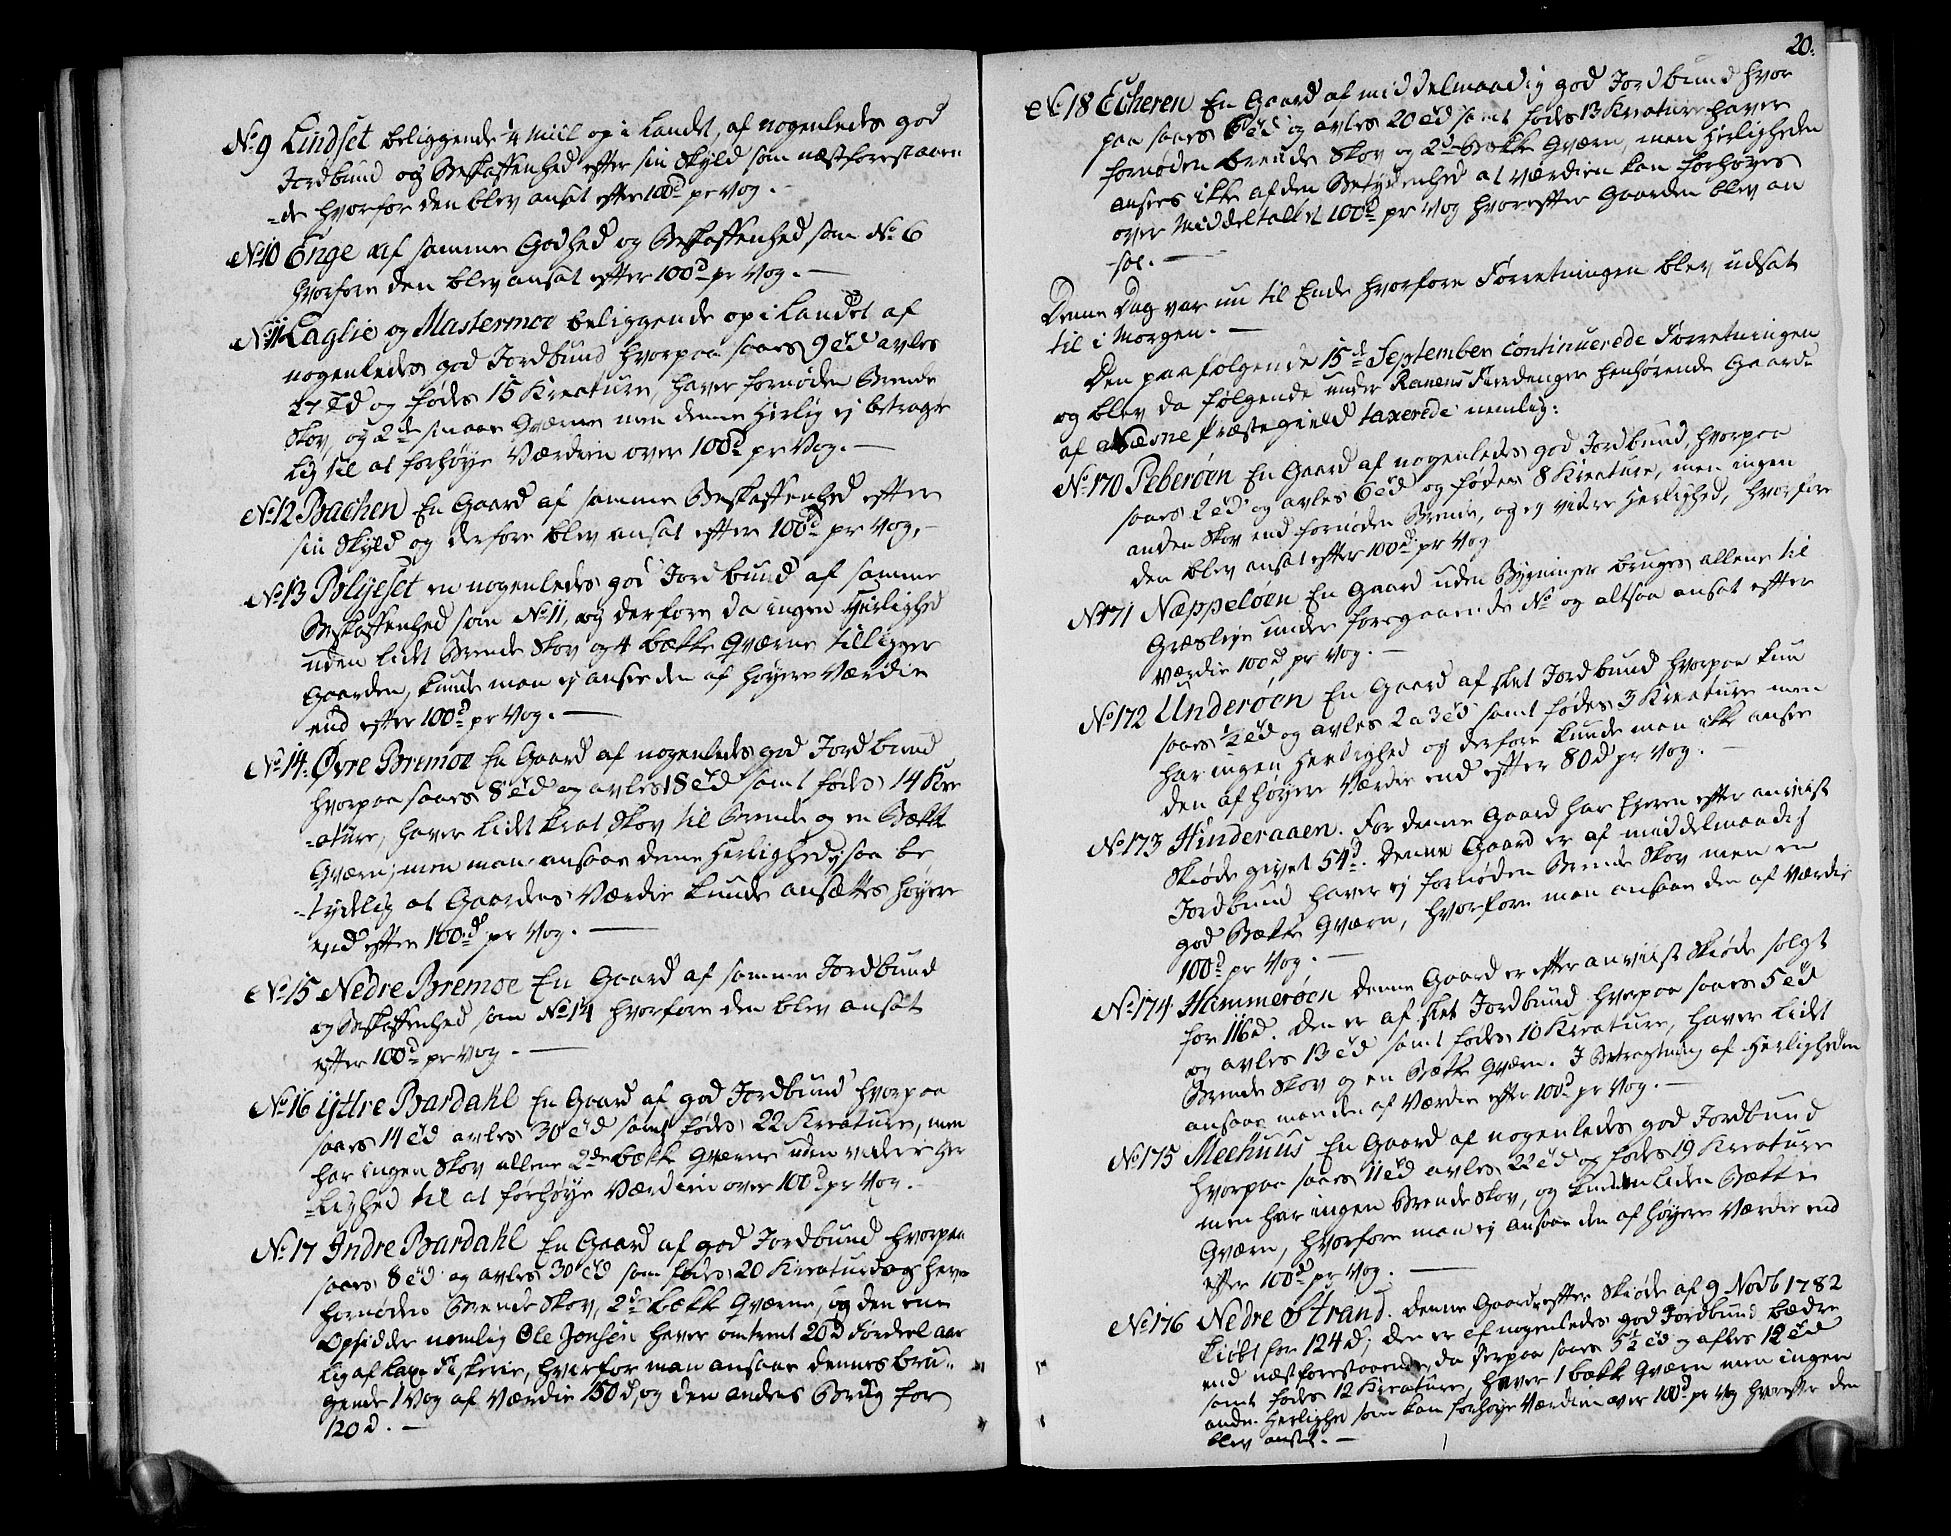 No 9 Lindset beliggende ¼ Miil op i Landet, af nogenledes god
Jordbund og Beskaffenhed efter sin Skyld som næstforestaaen
-de hvorfor den blev ansat efter 100d pr Vog. -
No 10 Enge af samme Godhed og Beskaffenhed som No 6
hvorfore den blev ansat efter 100d pr Vog. —
No 11 Laglie og Mastermoe beliggende op i Landet af
nogenledes god Jordbund hvorpaa saaes 9 Td avles
27 Td og fødes 15 Kreature, haver fornøden Brende
Skov, og 2de smaae Qværne men denne Herlig ej betragte
lig til at forhøye Værdien over 100d pr Vog. —
No 12 Bachen En Gaard af samme Beskaffenhed efter
sin Skyld og derfore blev ansat efter 100d pr Vog. -
No 13 Bolyeset en nogenledes god Jordbund af samme
Beskaffenhed som No 11, og derfore da ingen Herlighed
uden lidt Brende Skov og 4 bække Qværne tilligger
Gaarden, kunde man ej ansee den af høyere Værdie
end efter 100d pr Vog. —
No 14. Øvre Bremoe En Gaard af nogenledes god Jordbund
hvorpaa saaes 8 Td og avles 18 Td samt fødes 14 Kre
-ature, haver lidt krat Skov til Brende og en Bække
Qværn; men man ansaae denne Herlighed ej saa be
-tydelig at Gaardens Værdie kunde ansættes høyere
end efter 100d pr Vog. —
No 15 Nedre Bremoe En Gaard af samme Jordbund
og Beskaffenhed som No 14 hvorfore den blev ansat
efter 100d pr Vog. —
No 16 Yttre Bardahl En Gaard af god Jordbund hvorpaa
saaes 14 Td avles 30 Td samt fødes 22 Kreature, men
har ingen Skov allene 2de bække Qværne uden videre Her
-lighed til at forhøye Værdien over 100d pr Vog. -
No 17 Indre Bardahl En Gaard af god Jordbund hvorpaa
saaes 8 Td og avles 30 Td som fødes 20 Kreature og haver
fornøden Brende Skov, 2de bække Qværne, og den ene
Opsidder nemlig Ole Jonsen haver omtrent 20d Fordeel aar
lig af Laxe Fiskerie, hvorfor man ansaae dennes bru-
gende 1 Vog af Værdie 150d, og den andens Brug for
120d. —
20.
No 18 Echeren En Gaard af middelmaadig god Jordbund hvor
paa saaes 6 Td og avles 20 Td samt fødes 13 Kreature haver
fornøden brende Skov og 2de Bække Qværn, men Herligheden
ansees ikke af den Betydenhed at Værdien kan forhøyes
over Middeltallet 100d pr Vog hvorefter Gaarden blev an
-sat. —
Denne Dag var nu til Ende hvorfore Forretningen blev udsat
til i Morgen. —
Den paafølgende 15de September continuerede Forretningen
og blev da følgende under Ranens Fierdinger henhørende Gaarde
af Næsne Præstegield taxerede nemlig:
No 170 Peberøen En Gaard af nogenledes god Jordbund, hvorpaa
saaes 2 Td og avles 6 Td og føder 8 Kreature, men ingen
anden Skov end fornøden Brende, og ej videre Herlighed, hvorfore
den blev ansat efter 100d pr Vog
No 171 Næppeløen En Gaard uden Bygninger bruges allene til
Græsleye under foregaaende No og altsaa ansat efter
Værdie 100d pr Vog. —
No 172 Underøen En Gaard af slet Jordbund hvorpaa kun
saaes ½ Td og avles 2 a 3 Td samt fødes 3 Kreature men
har ingen Herlighed og derfore kunde man ikke ansee
den af høyere Værdie end efter 80d pr Vog. —
No 173 Hinderaaen. For denne Gaard har Ejeren efter anviist
Skiøde givet 54d. Denne Gaard er af middelmaadig
Jordbund haver ej fornøden Brende Skov men en
god Bække Qværn, hvorfore man ansaae den af Værdie
100d pr Vog. —
No 174 Hammerøen denne Gaard er efter anviist Skiøde solgt
for 116d. den er af slet Jordbund hvorpaa saaes 5 Td
og avles 13 Td samt fødes 10 Kreature, haver lidt
Brende Skov og en Bække Qværn. I Betragtning af Herligheden
ansaae man den af Værdie efter 100d pr Vog. —
No 175 Meehuus En Gaard af nogenledes god Jordbund
hvorpaa saaes 11 Td avles 22 Td og fødes 19 Kreature
men har ingen Brende Skov, og kun en liden Bække
Qværn, hvorfore man ej ansaae den af høyere Værdie end
efter 100d pr Vog. —
No 176 Nedre Strand. denne Gaard er efter Skiøde af 9 Novb 1782
kiøbt for 124d; den er af nogenledes god Jordbund bædre
end næstforestaaende, da herpaa saaes 5½ Td og afles 12 Td
samt fødes 12 Kreature, haver 1 bække Qværn men ingen
anden Herlighed som kan forhøye Værdien over 100d pr Vog hvorefter den
blev ansat. —